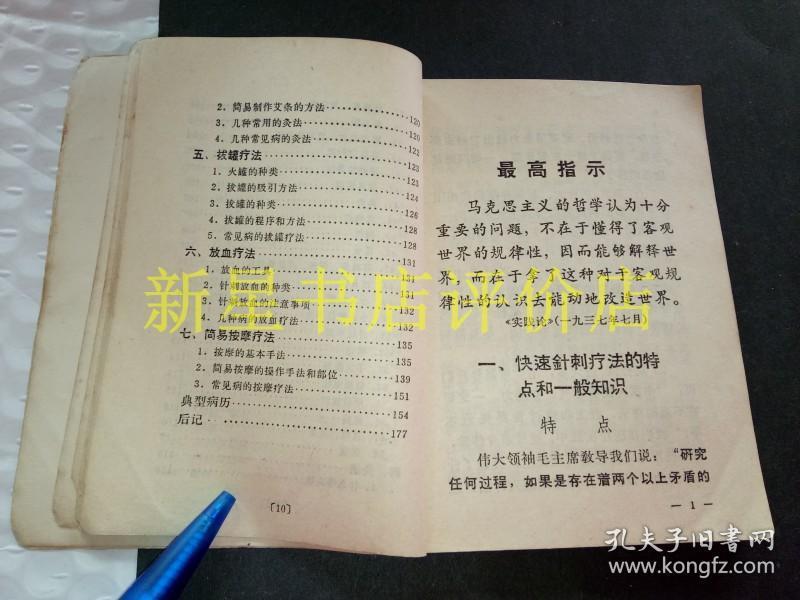 2. 简易制作艾条的方法……………120
3. 几种常用的灸法………………120
4. 几种常见病的灸法……………122
五、拔罐疗法………………………123
1. 火罐的种类……………………123
2. 拔罐的吸引方法………………124
3. 拔罐的种类……………………126
4. 拔罐的程序和方法……………128
5. 常见病的拔罐疗法……………128
六、放血疗法………………………131
1. 放血的工具……………………131
2. 针刺放血的种类………………131
3. 针刺放血的注意事项…………135
4. 几种病的放血疗法……………135
七、简易按摩疗法…………………135
1. 按摩的基本手法………………135
2. 简易按摩的操作手法和部位…139
3. 常见病的按摩疗法……………151
典型病历……………………………154
后记…………………………………177
〔10〕
最高指示
马克思主义的哲学认为十分
重要的问题，不在于懂得了客观
世界的规律性，因而能够解释世
界，而在于拿了这种对于客观规
律性的认识去能动地改造世界。
《实践论》（一九三七年七月）
一、快速針刺疗法的特
点和一般知识
特 点
伟大领袖毛主席敎导我们说：“研究
任何过程，如果是存在着两个以上矛盾的
— 1 —
新星书店评价店
孔夫子旧书网
www.kongfz.com